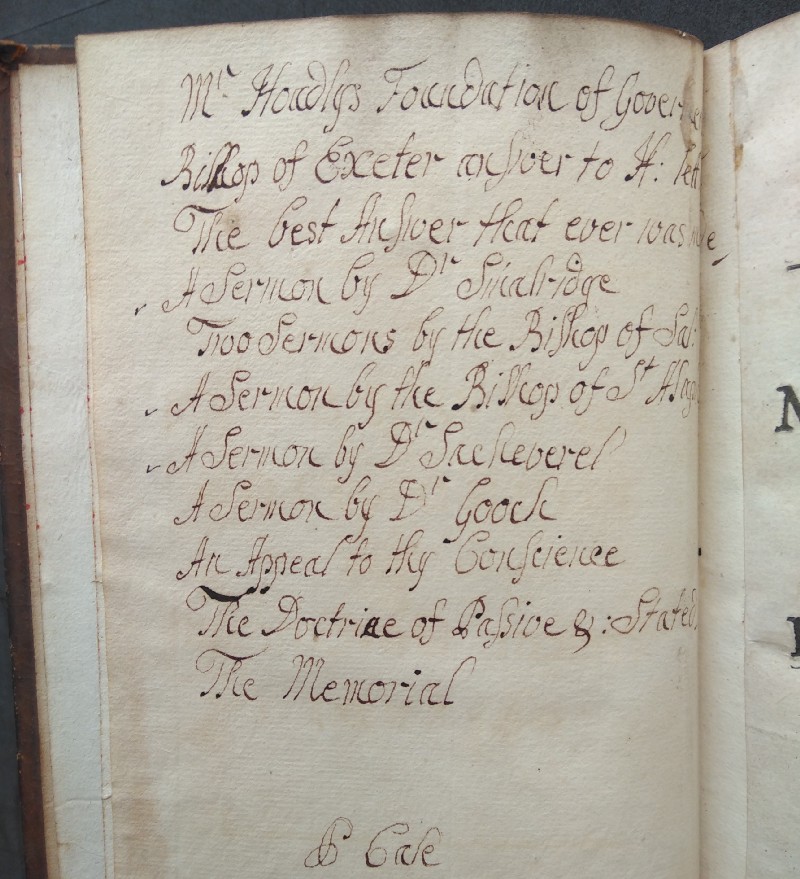 Mr Hoadlys Foundation of Govern
Bishop of Exeter answer to H: lett
The best Answer that ever was
A Sermon by Dr Smalridge
Two Sermons by the Bishop of Sal:
A Sermon by the Bishop of St Asap
A Sermon by Dr Sacheverel
A Sermon by Dr Gooch
An Appeal to thy Conscience
The Doctrine of Passive &: Stated
The Memorial